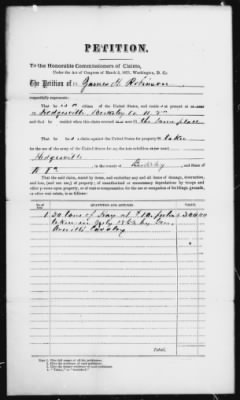 PETITION.
To the Honorable Commissioners of Claims,
Under the Act of Congress of March 3, 1871, Washington, D. C.
The Petition of James H. Robinson
respectfully represents:
That he is a citizen of the United States, and resides at present at
Hedgesville Berkeley Co W. Va
and that he resided when this claim accrued at the same place
That he has a claim against the United States for property taken
for the use of the army of the United States
Hedgesville
in the county of Berkeley and State of
W Va
That the said claim, stated by items, and excluding any and all items of damage, destruction,
and loss, (and not use,) of property; of unauthorized or unnecessary depredations by troops and
other persons upon property, or of rent or compensation for the use or occupation of buildings, grounds,
or other real estate, is as follows:
QUANTITIES AND ARTICLES.
VALUE.
1 30 tons of Hay at $10. per ton 300 00
taken in July 1863 by
Averill's Cavalry
Total.